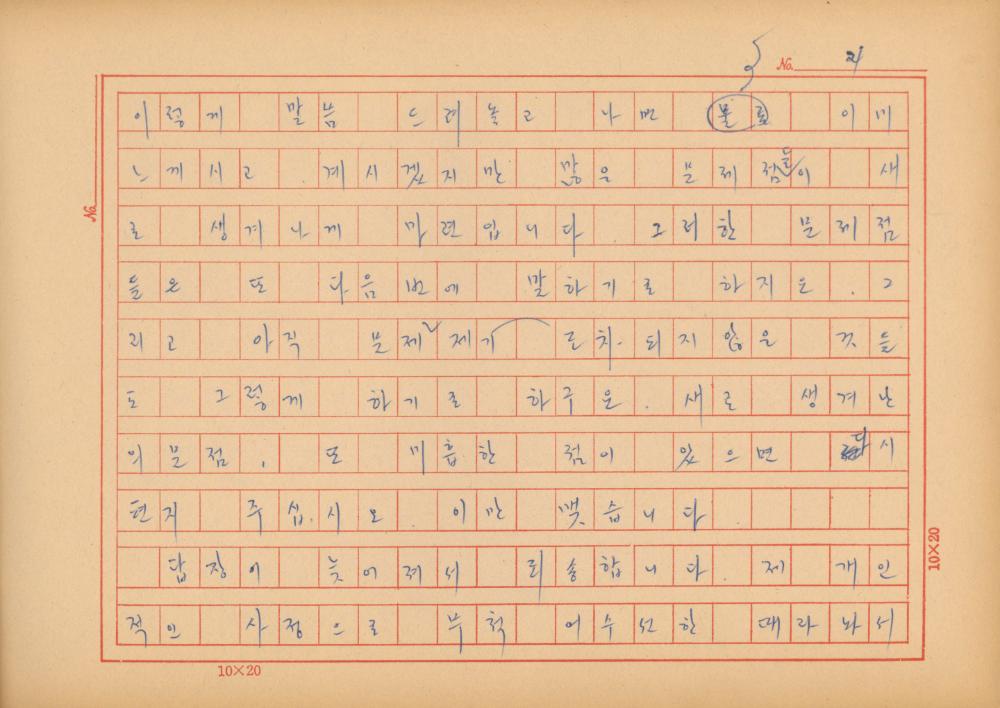 No. 21
이렇게 말씀 드려 놓고 나면 물론 이미
느께시고 계시겠지만 많은 문제점들이 새
로 생겨나게 마련입니다. 그러한 문제점
들은 또 다음번에 말하기로 하지요. 그
리고 아직 문제 제기 되지 않은 것들
도 그렇게 하기로 하구요. 새로 생겨난
의문점, 또 미흡한 점이 있으면 다시
편지 주십시오. 이만 맺습니다.
답장이 늦어져서 죄송합니다. 제 개인
적인 사정으로 부척 어수선한 때라 놔서
No.
10×20
10×20